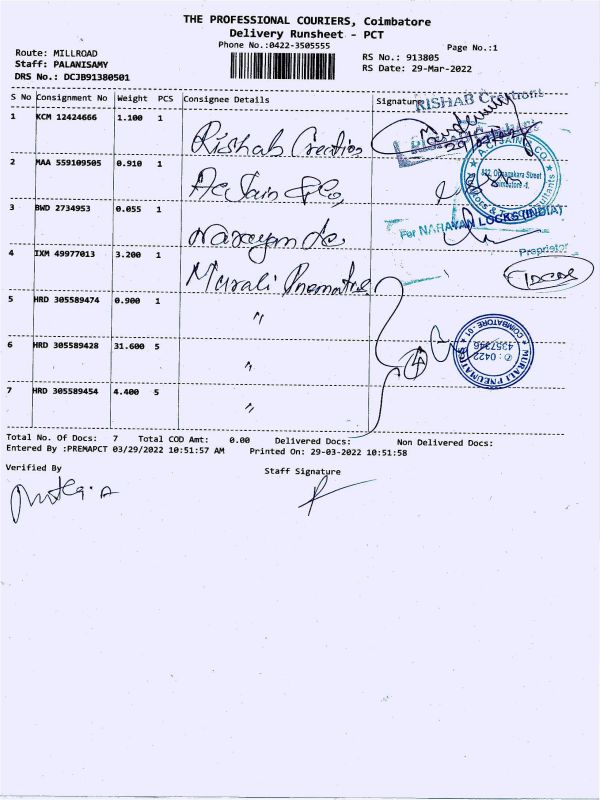 THE PROFESSIONAL COURIERS, Coimbatore
Delivery Runsheet - PCT
Phone No.:0422-3505555
Page No.:1
Route: MILLROAD
Staff: PALANISAMY
DRS No.: DCJB91380501
RS No.: 913805
RS Date: 29-Mar-2022
S No Consignment No Weight PCS Consignee Details Signature
RISHAB Creations
1 KCM 12424666 1.100 1 Rishab Creations
2 MAA 559109505 0.910 1 AC Jain & Co,
3 BWD 2734953 0.055 1 Narayan
For NARAYAN LOCKS (INDIA)
Proprietor
4 IXM 49977013 3.200 1 Murali Pnematics
5 HRD 305589474 0.900 1 "
6 HRD 305589428 31.600 5 "
7 HRD 305589454 4.400 5 "
4
MURALI PNEUMATICS
COIMBATORE - 01
: 0422
4357396
Total No. Of Docs: 7 Total COD Amt: 0.00 Delivered Docs: Non Delivered Docs:
Entered By :PREMAPCT 03/29/2022 10:51:57 AM Printed On: 29-03-2022 10:51:58
Verified By Staff Signature